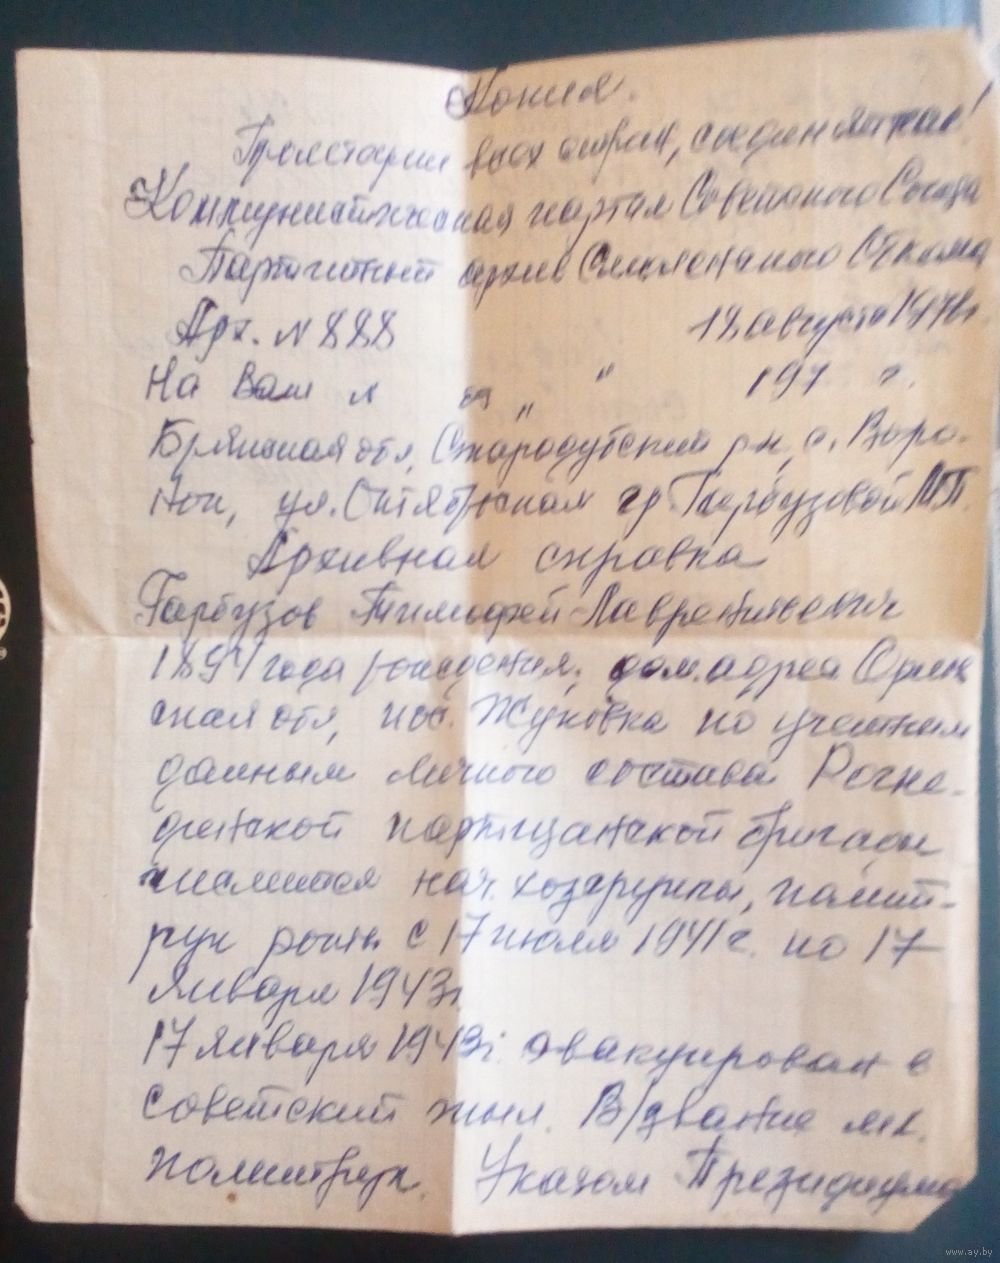 Копия.
Пролетарии всех стран, соединяйтесь!
Коммунистическая партия Советского Союза
Партийный архив Смоленского Обкома
Арх. № 888 18 августа 197 г.
На Ваш № от " " 197 г.
Брянская обл, Стародубский р-н, с. Воро-
нок, ул. Октябрьская гр. Гарбузовой М.П.
Архивная справка
Гарбузов Тимофей Лаврентьевич
1897 года рождения, дом. адрес Орлов
ская обл, пос. Жуковка по учетным
данным личного состава Рогне-
динской партизанской бригады
числится нач. хозгруппы, полит-
рук роты с 17 июля 1941 г. по 17
января 1943г
17 января 1943г. эвакуирован в
советский тыл. В/звание мл.
политрук. Указом Президиума
www.ay.by